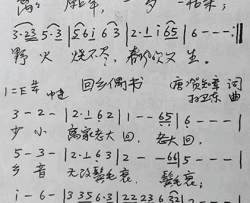 3·23 5·3 | 5 6 i 6 3 | 2·1 i 6 5 | 6 - - - ‖
野 火 烧不尽, 春风吹又生。
1=E 4/4 中速 回乡偶书 唐·贺知章 词
曲
3 - 2 - | 2·1 6 2 | 1 - - 6 5 | 6 - - - |
少 小 离家老大回, 老大回,
5 - 3 - | 2·1 6 3 | 2 - - 6 6 | 5 - - - |
乡 音 无改鬓毛衰, 鬓毛衰;
i - 6 - | 3 3 5 6·3 | 2 2 2 3 6 3 2 |